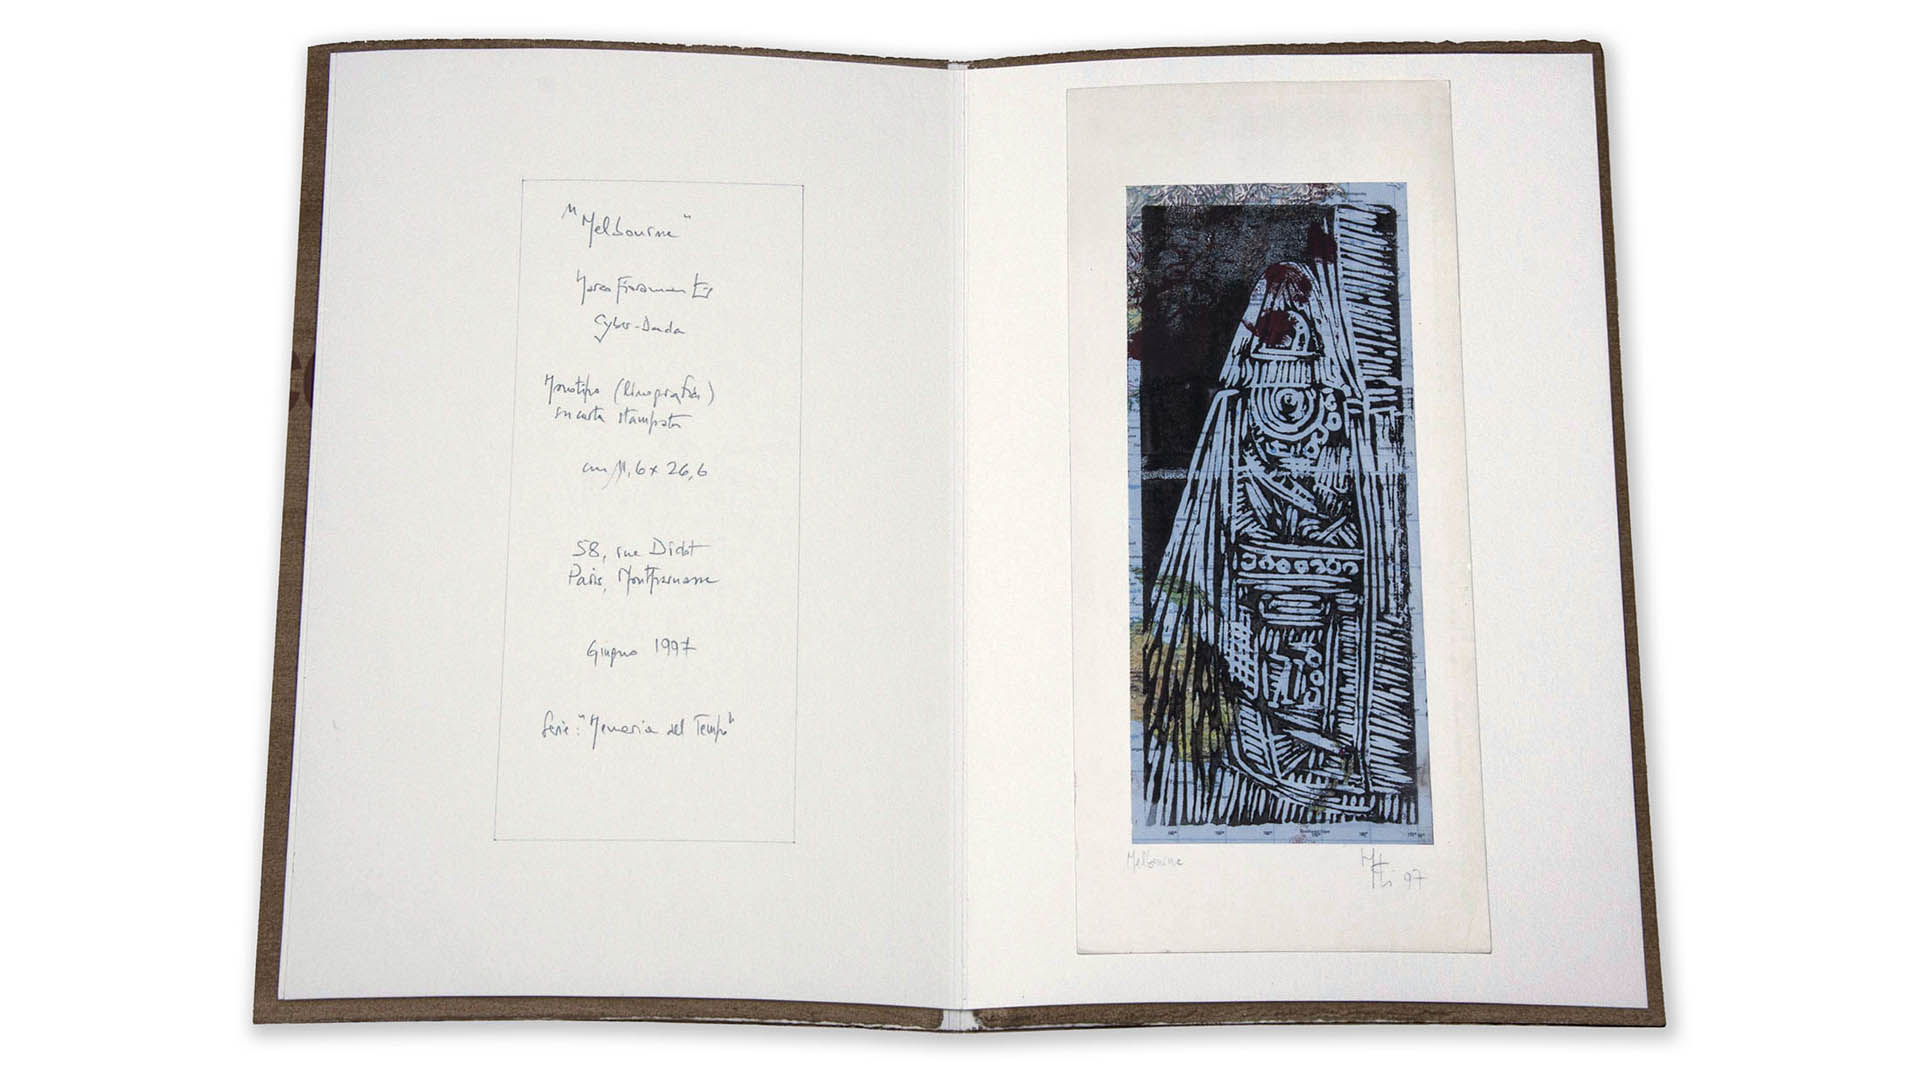 "Melbourne"
Marco Fioramanti
Cyber-Dada
Monotipo (linografia)
su carta stampata
cm 11,6 x 26,6
58, rue Didot
Paris, Montparnasse
Giugno 1997
Serie: "Memoria del Tempo"
Melbourne
97